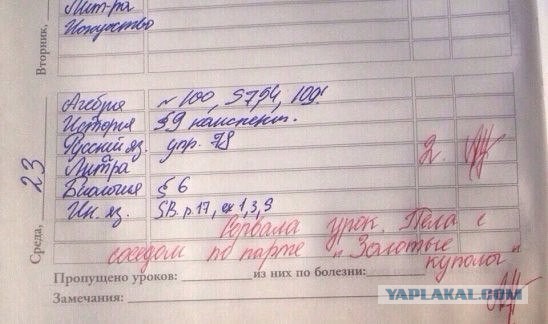 Лит-ра
Искусство
Вторник,
Алгебра № 100, 5754, 109.
История §9 конспект.
Русский яз. упр. 78
Лит-ра 2.
Биология § 6
Ин. яз. SB. p.17, ex 1,3,9
Среда, 23
Сорвала урок. Пела с
соседом по парте "Золотые
купола"
Пропущено уроков: из них по болезни:
Замечания:
YAPLAKAL.COM